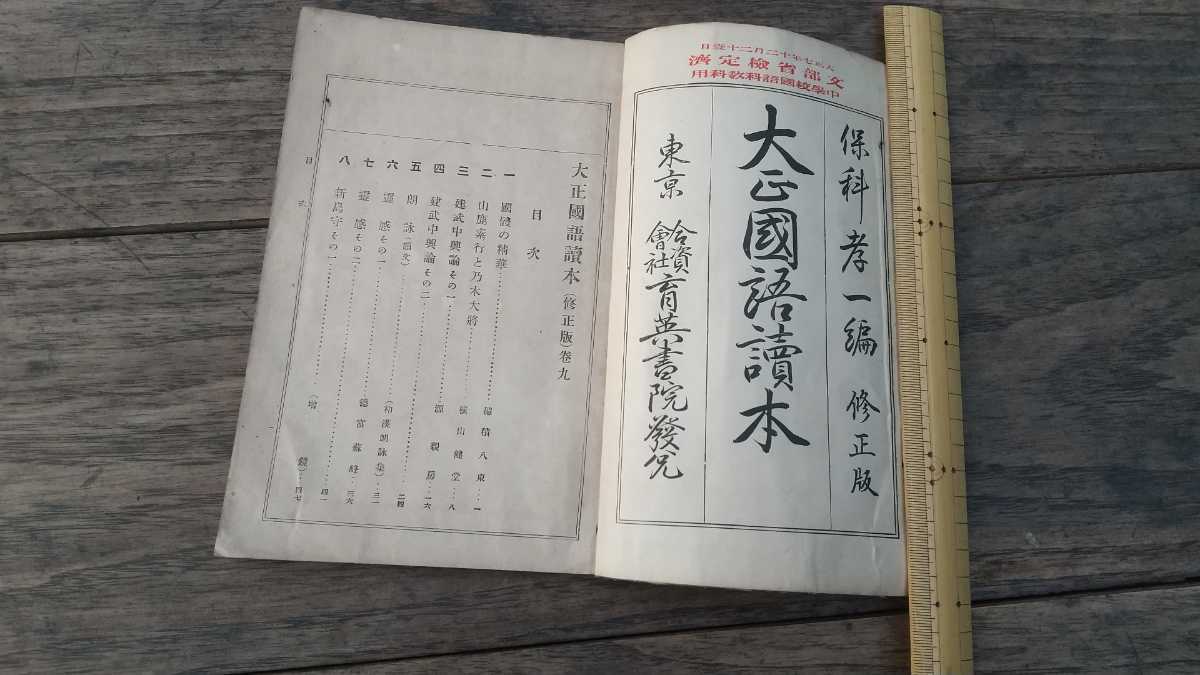 大正七年十二月二十壹日
文部省檢定濟
中學校國語科敎科用
保科孝一編 修正版
大正國語讀本
東京 合資會社 育英書院發兌
大正國語讀本(修正版)卷九
目次
一 國體の精華……穗積八束…一
二 山鹿素行と乃木大將……橫山健堂…八
三 建武中興論その一……源親房…一六
四 建武中興論その二……二四
五 朗詠……(和漢朗詠集)…三一
六 靈感その一……德富蘇峰…三六
七 靈感その二……四一
八 新島守その一……(增鏡)…四七
目次